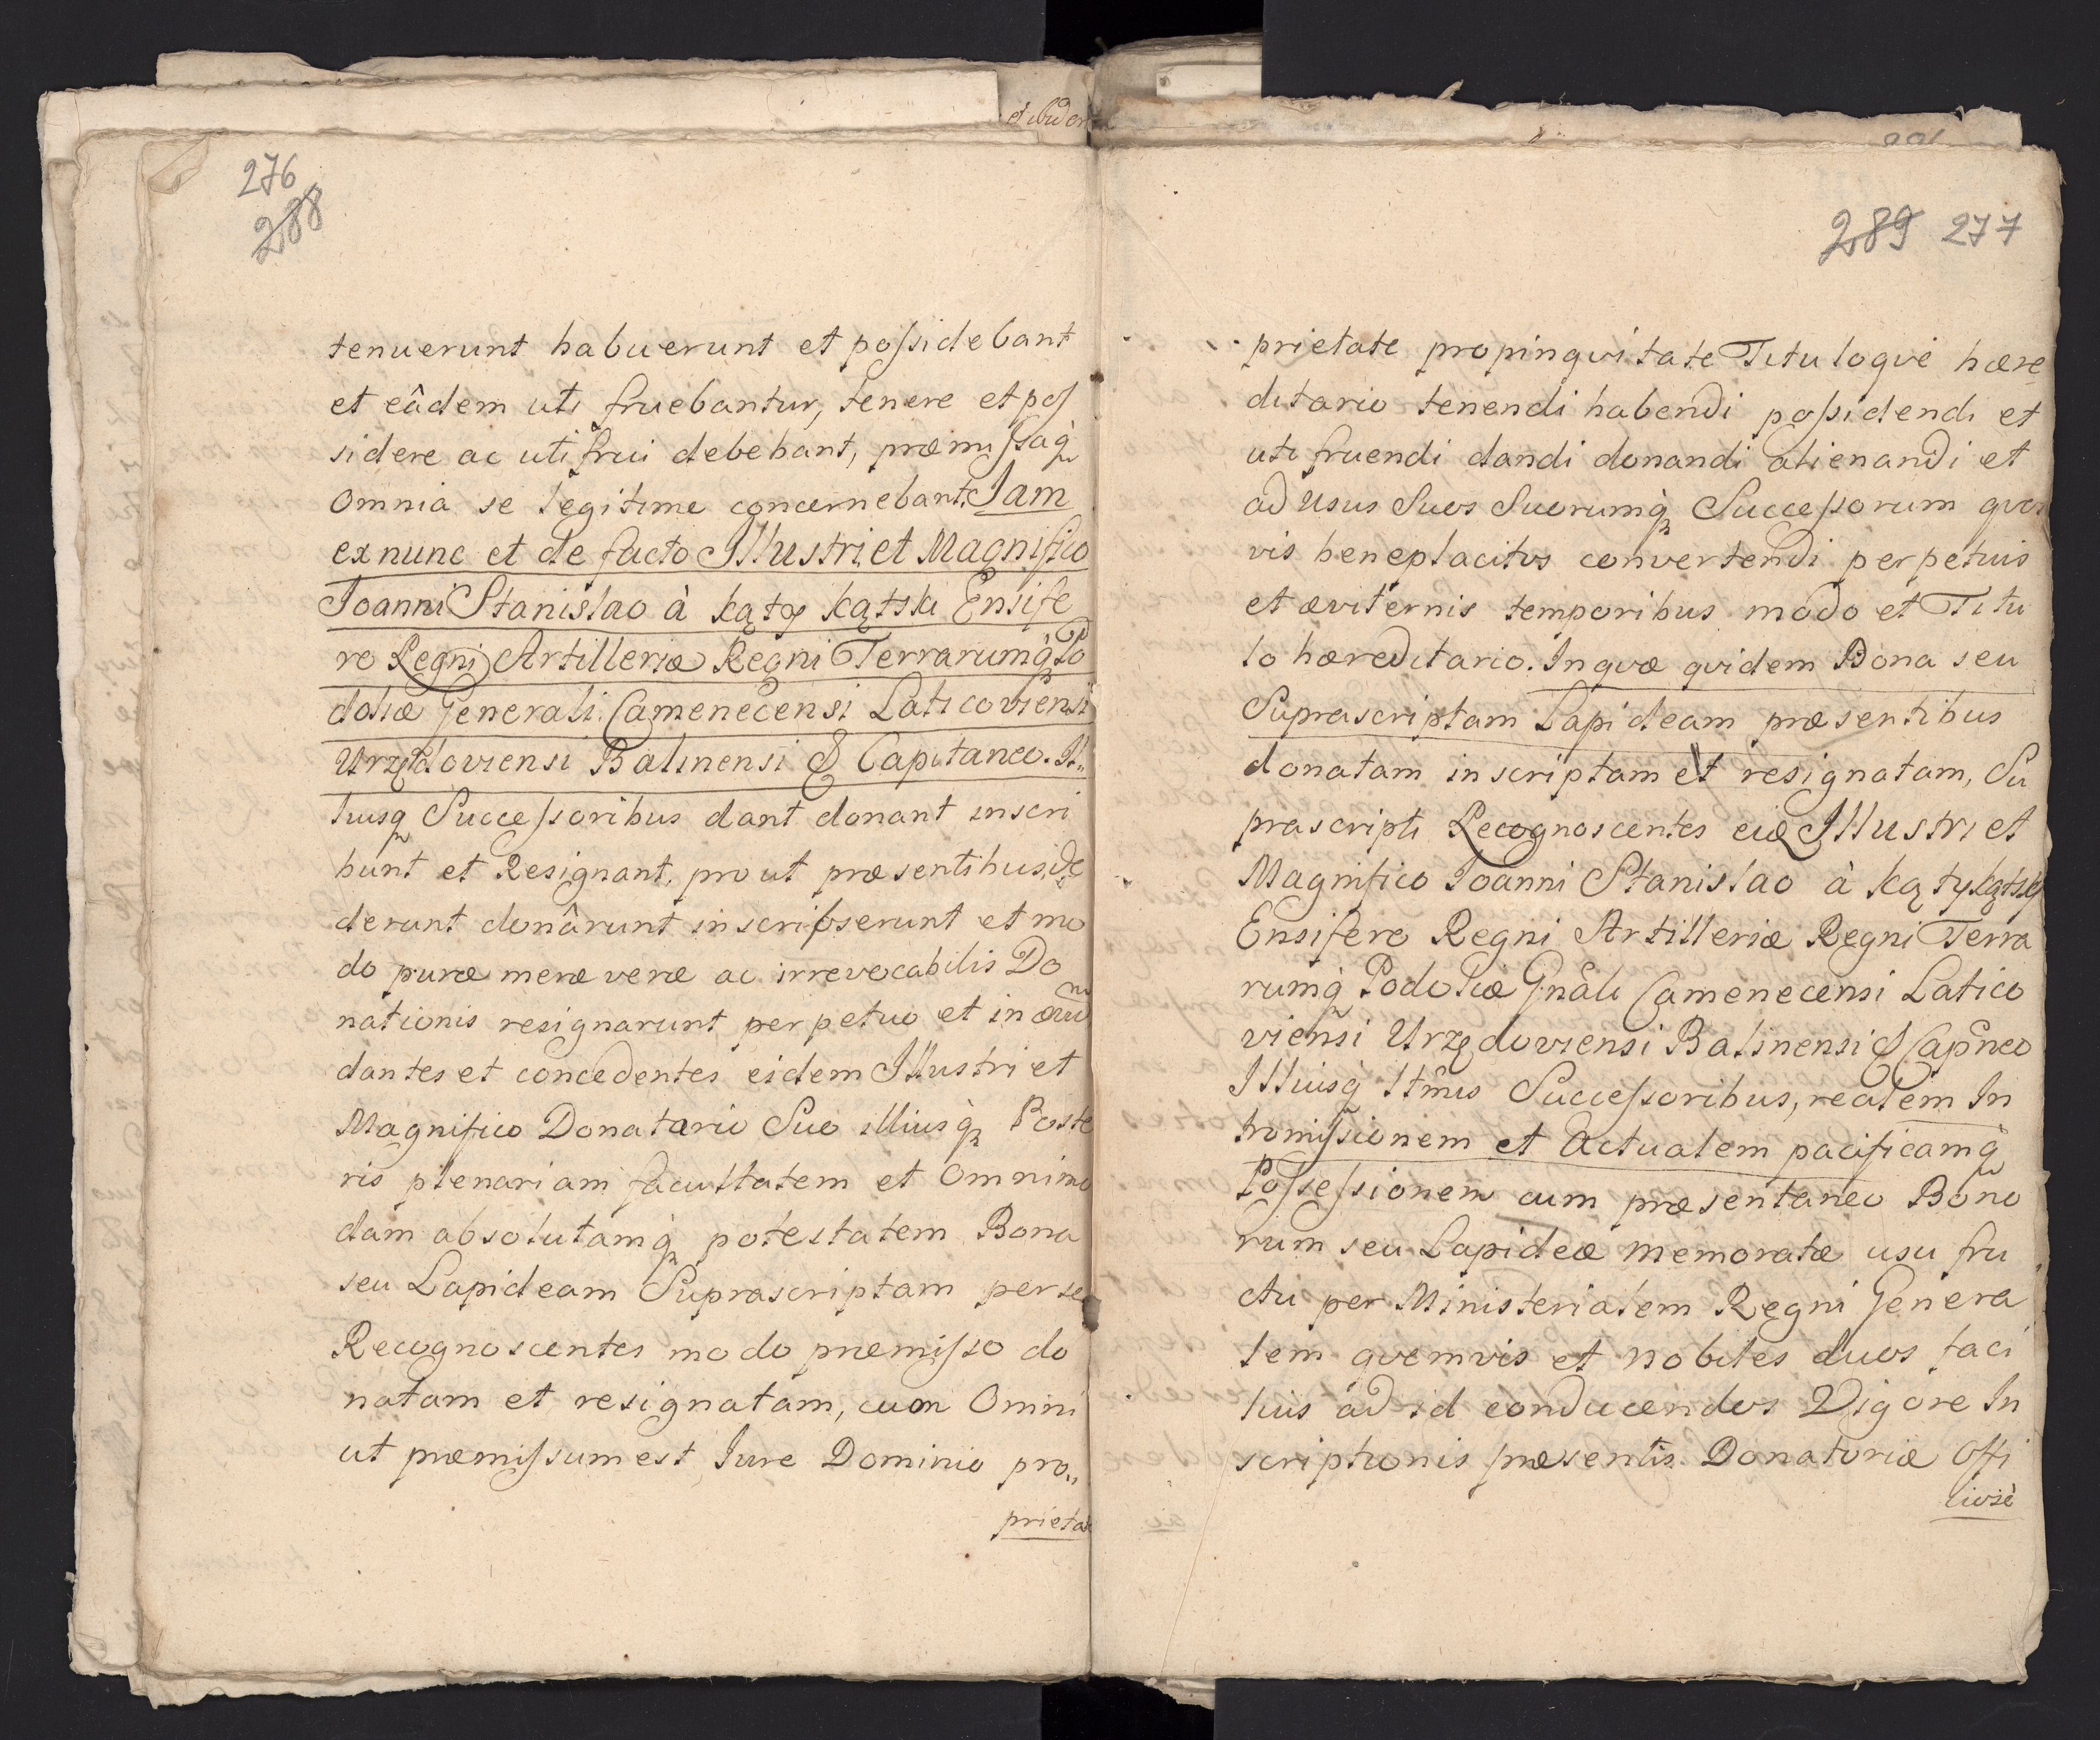 276
288
tenuerunt habuerunt et possidebant
et eâdem uti fruebantur, tenere et pos
sidere ac uti frui debebant, præmissaq̀
omnia se legitime concernebant. Iam
ex nunc et de facto Illustri et Magnifico
Joanni Stanislao à Kąty Kątski Ensife
ro Regni Artilleriæ Regni Terrarumq̀ Po
doliæ Generali Camenecensi Laticoviensi
Urzędoviensi Balinensi & Capitaneo. Il„
liusq Successoribus dant donant inscri
bunt et Resignant, prout præsentibus de
derunt donârunt inscripserunt et mo
do puræ meræ veræ ac irrevocabilis Do
nationis resignarunt perpetuo et in ævum
dantes et concedentes eidem Illustri et
Magnifico Donatario Suo illiusq̀ Poste
ris plenariam facultatem et omnimo
dam absolutamq̀ potestatem Bona
seu Lapideam Suprascriptam per se
Recognoscentes modo præmisso do
natam et resignatam, cum Omni
ut præmissum est Iure Dominio pro„
prietate
289 277
prietate propinqvitate Tituloqvè hære
ditario tenendi habendi possidendi et
uti fruendi dandi donandi alienandi et
ad usus Suos Suorumq̀ Successorum qvos
vis beneplacitos convertendi perpetuis
et æviternis temporibus modo et Titu
lo hæreditario. In qvæ qvidem Bona seu
Suprascriptam Lapideam præsentibus
donatam inscriptam et resignatam, Su
prascripti Recognoscentes eidem Illustri et
Magnifico Joanni Stanislao à Kąty Kątsky
Ensifero Regni Artilleriæ Regni Terra
rumq̀ Podoliæ Gnâli Camenecensi Latico
viensi Urzędoviensi Balinensi & Capneo
Illiusq lttmis Successoribus, realem In
tromissionem et actualem pacificamq̀
Possessionem cum præsentaneo Bono
rum seu Lapideæ memoratæ usu fru
ctu per Ministerialem Regni Genera
lem qvemvis et nobiles duos faci
lius ad id conducendos Vigore In
scriptionis præsentis Donatoriæ Offi
ciosè